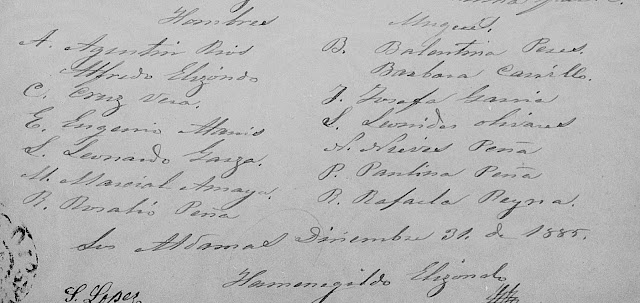 Hombres
A. Agentin Rios
Alfredo Elizondo
C. Cruz Vera.
E. Eugenio Alanis
L. Leonardo Garza.
M. Marcial Amaya.
R. Rosalio Peña
Mugeres.
B. Balentina Peres.
Barbara Carrillo.
J. Josefa Garcia
L. Leonides Olivares
N. Nieves Peña
P. Paulina Peña
R. Rafaela Reyna.
Los Aldamas Diciembre 31. de 1885.
Hamenegildo Elizondo
S. Lopez